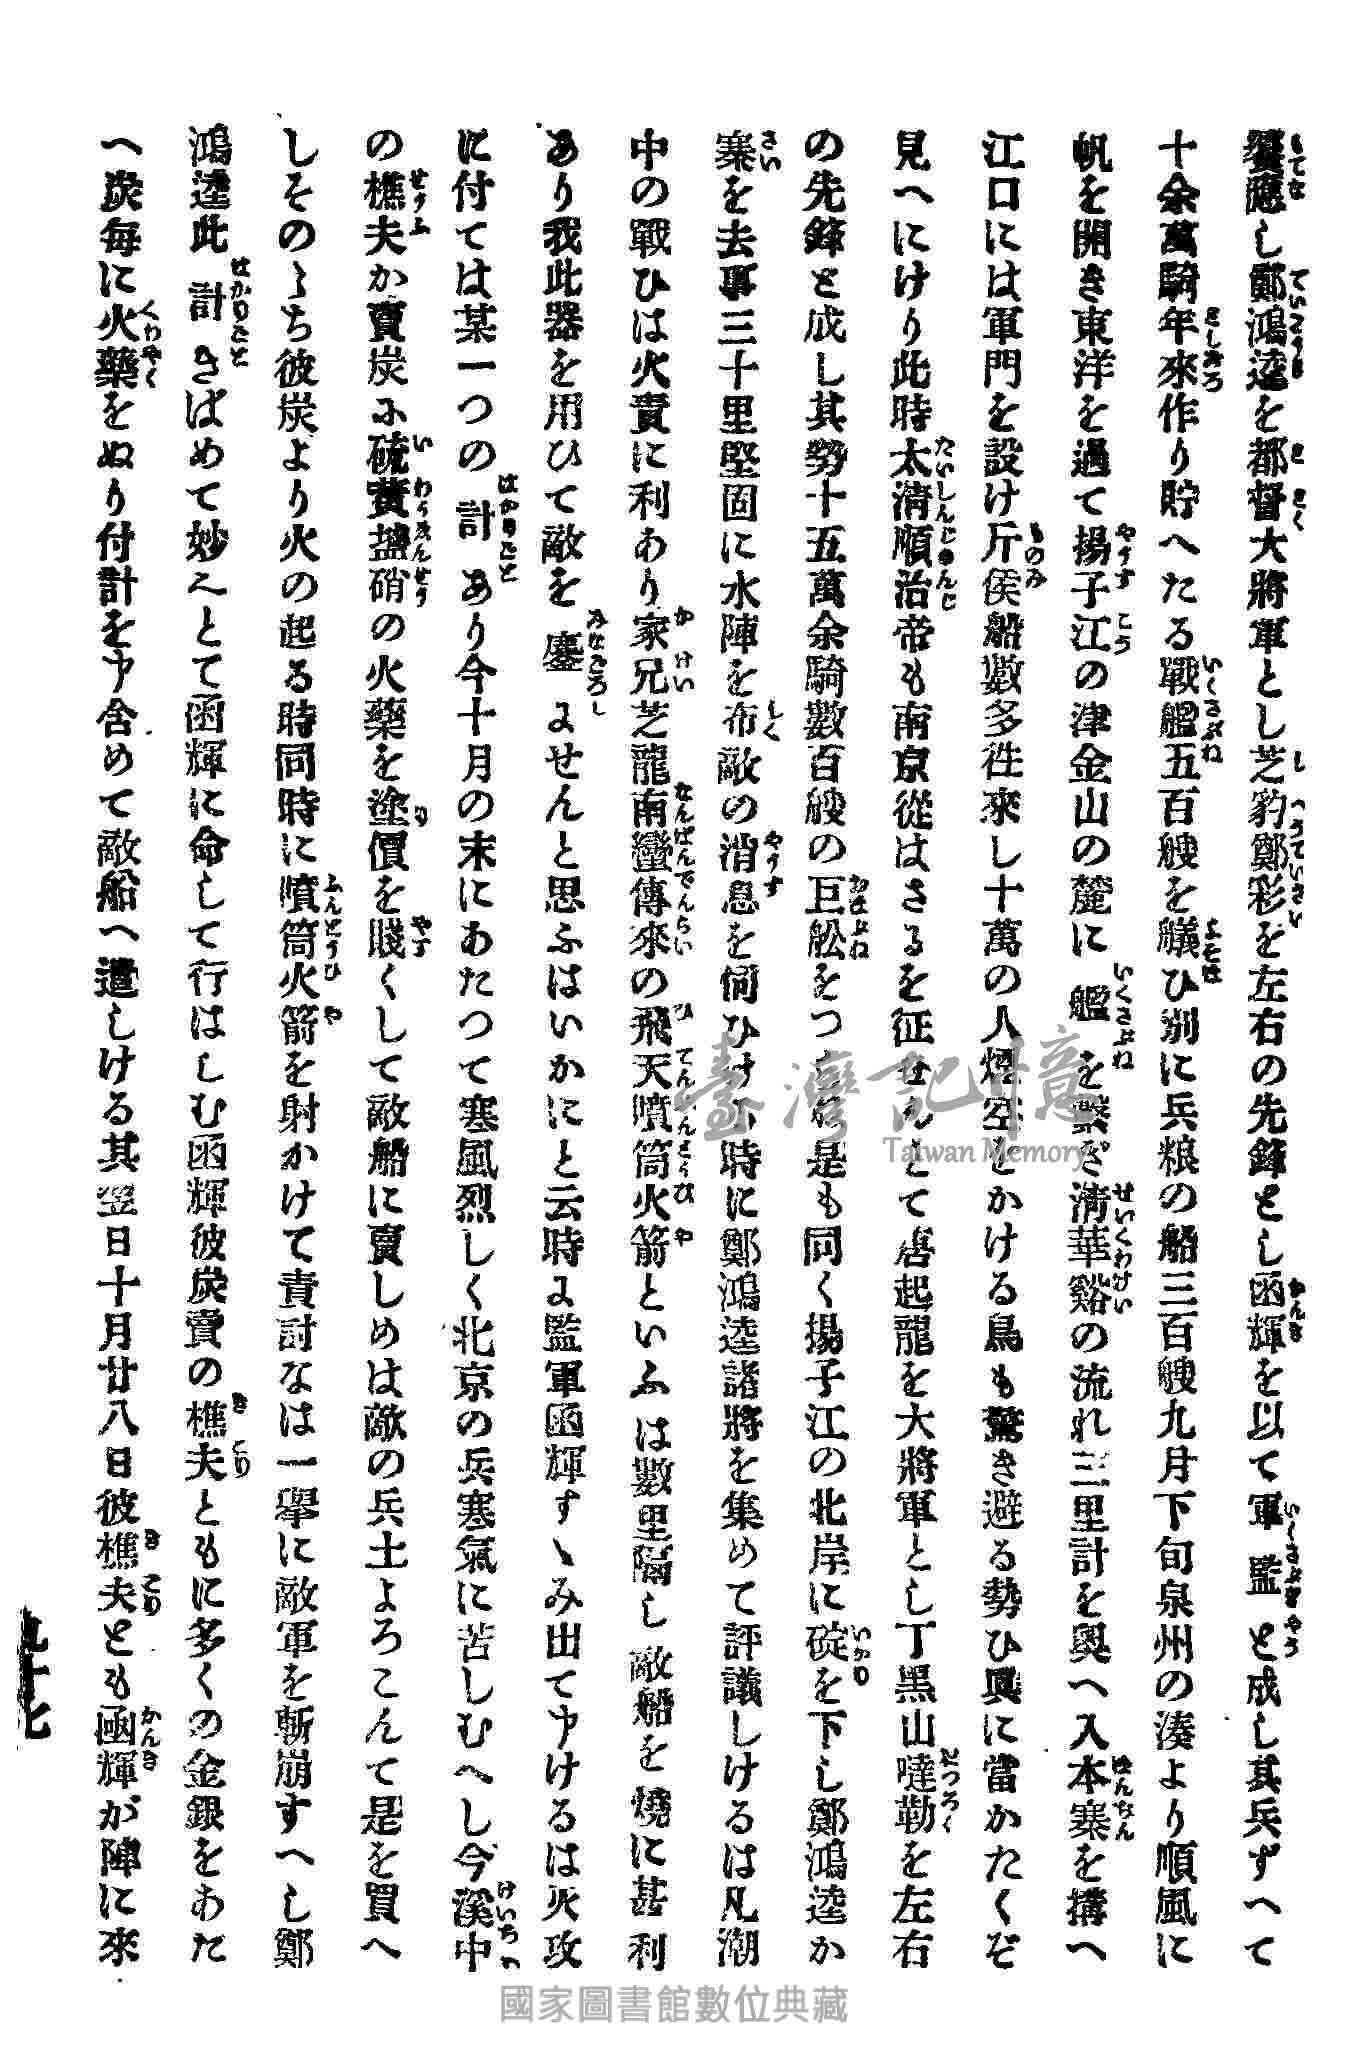 饗應し鄭鴻逵を都督大將軍とし芝豹鄭彩を左右の先鋒とし函輝を以て軍監と成し其兵すへて
十余萬騎年來作り貯へたる戰艦五百艘を艤ひ別に兵粮の船三百艘九月下旬泉州の湊より順風に
帆を開き東洋を過て揚子江の津金山の麓に艦を繋き清華谿の流れ三里計を奥へ入本寨を搆へ
江口には軍門を設け斤候船數多徃來し十萬の人煙空をかける鳥も驚き避る勢ひ眞に當かたくぞ
見へにけり此時太清順治帝も南京從はさるを征せんとて唐起龍を大將軍とし丁黑山噠勒を左右
の先鋒と成し其勢十五萬余騎數百艘の巨舩をつらね是も同く揚子江の北岸に碇を下し鄭鴻逵か
寨を去事三十里堅固に水陣を布敵の消息を伺ひける時に鄭鴻逵諸將を集めて評議しけるは凡潮
中の戰ひは火責に利あり家兄芝龍南蠻傳來の飛天噴筒火箭といふは數里隔し敵船を燒に甚利
あり我此器を用ひて敵を鏖よせんと思ふはいかにと云時よ監軍函輝すゝみ出て申けるは火攻
に付ては某一つの計あり今十月の末にあたつて寒風烈しく北京の兵寒氣に苦しむへし今溪中
の樵夫か賣炭に硫黄塩硝の火藥を塗價を賤くして敵船に賣しめは敵の兵士よろこんて是を買へ
しそのゝち彼炭より火の起る時同時に噴筒火箭を射かけて責討なは一擧に敵軍を斬崩すへし鄭
鴻逵此計きはめて妙へとて函輝に命して行はしむ函輝彼炭賣の樵夫ともに多くの金銀をあた
へ炭毎に火藥をぬり付計を申含めて敵船へ遣しける其翌日十月廿八日彼樵夫とも函輝が陣に來
九十七
臺灣記憶
Taiwan Memory
國家圖書館數位典藏